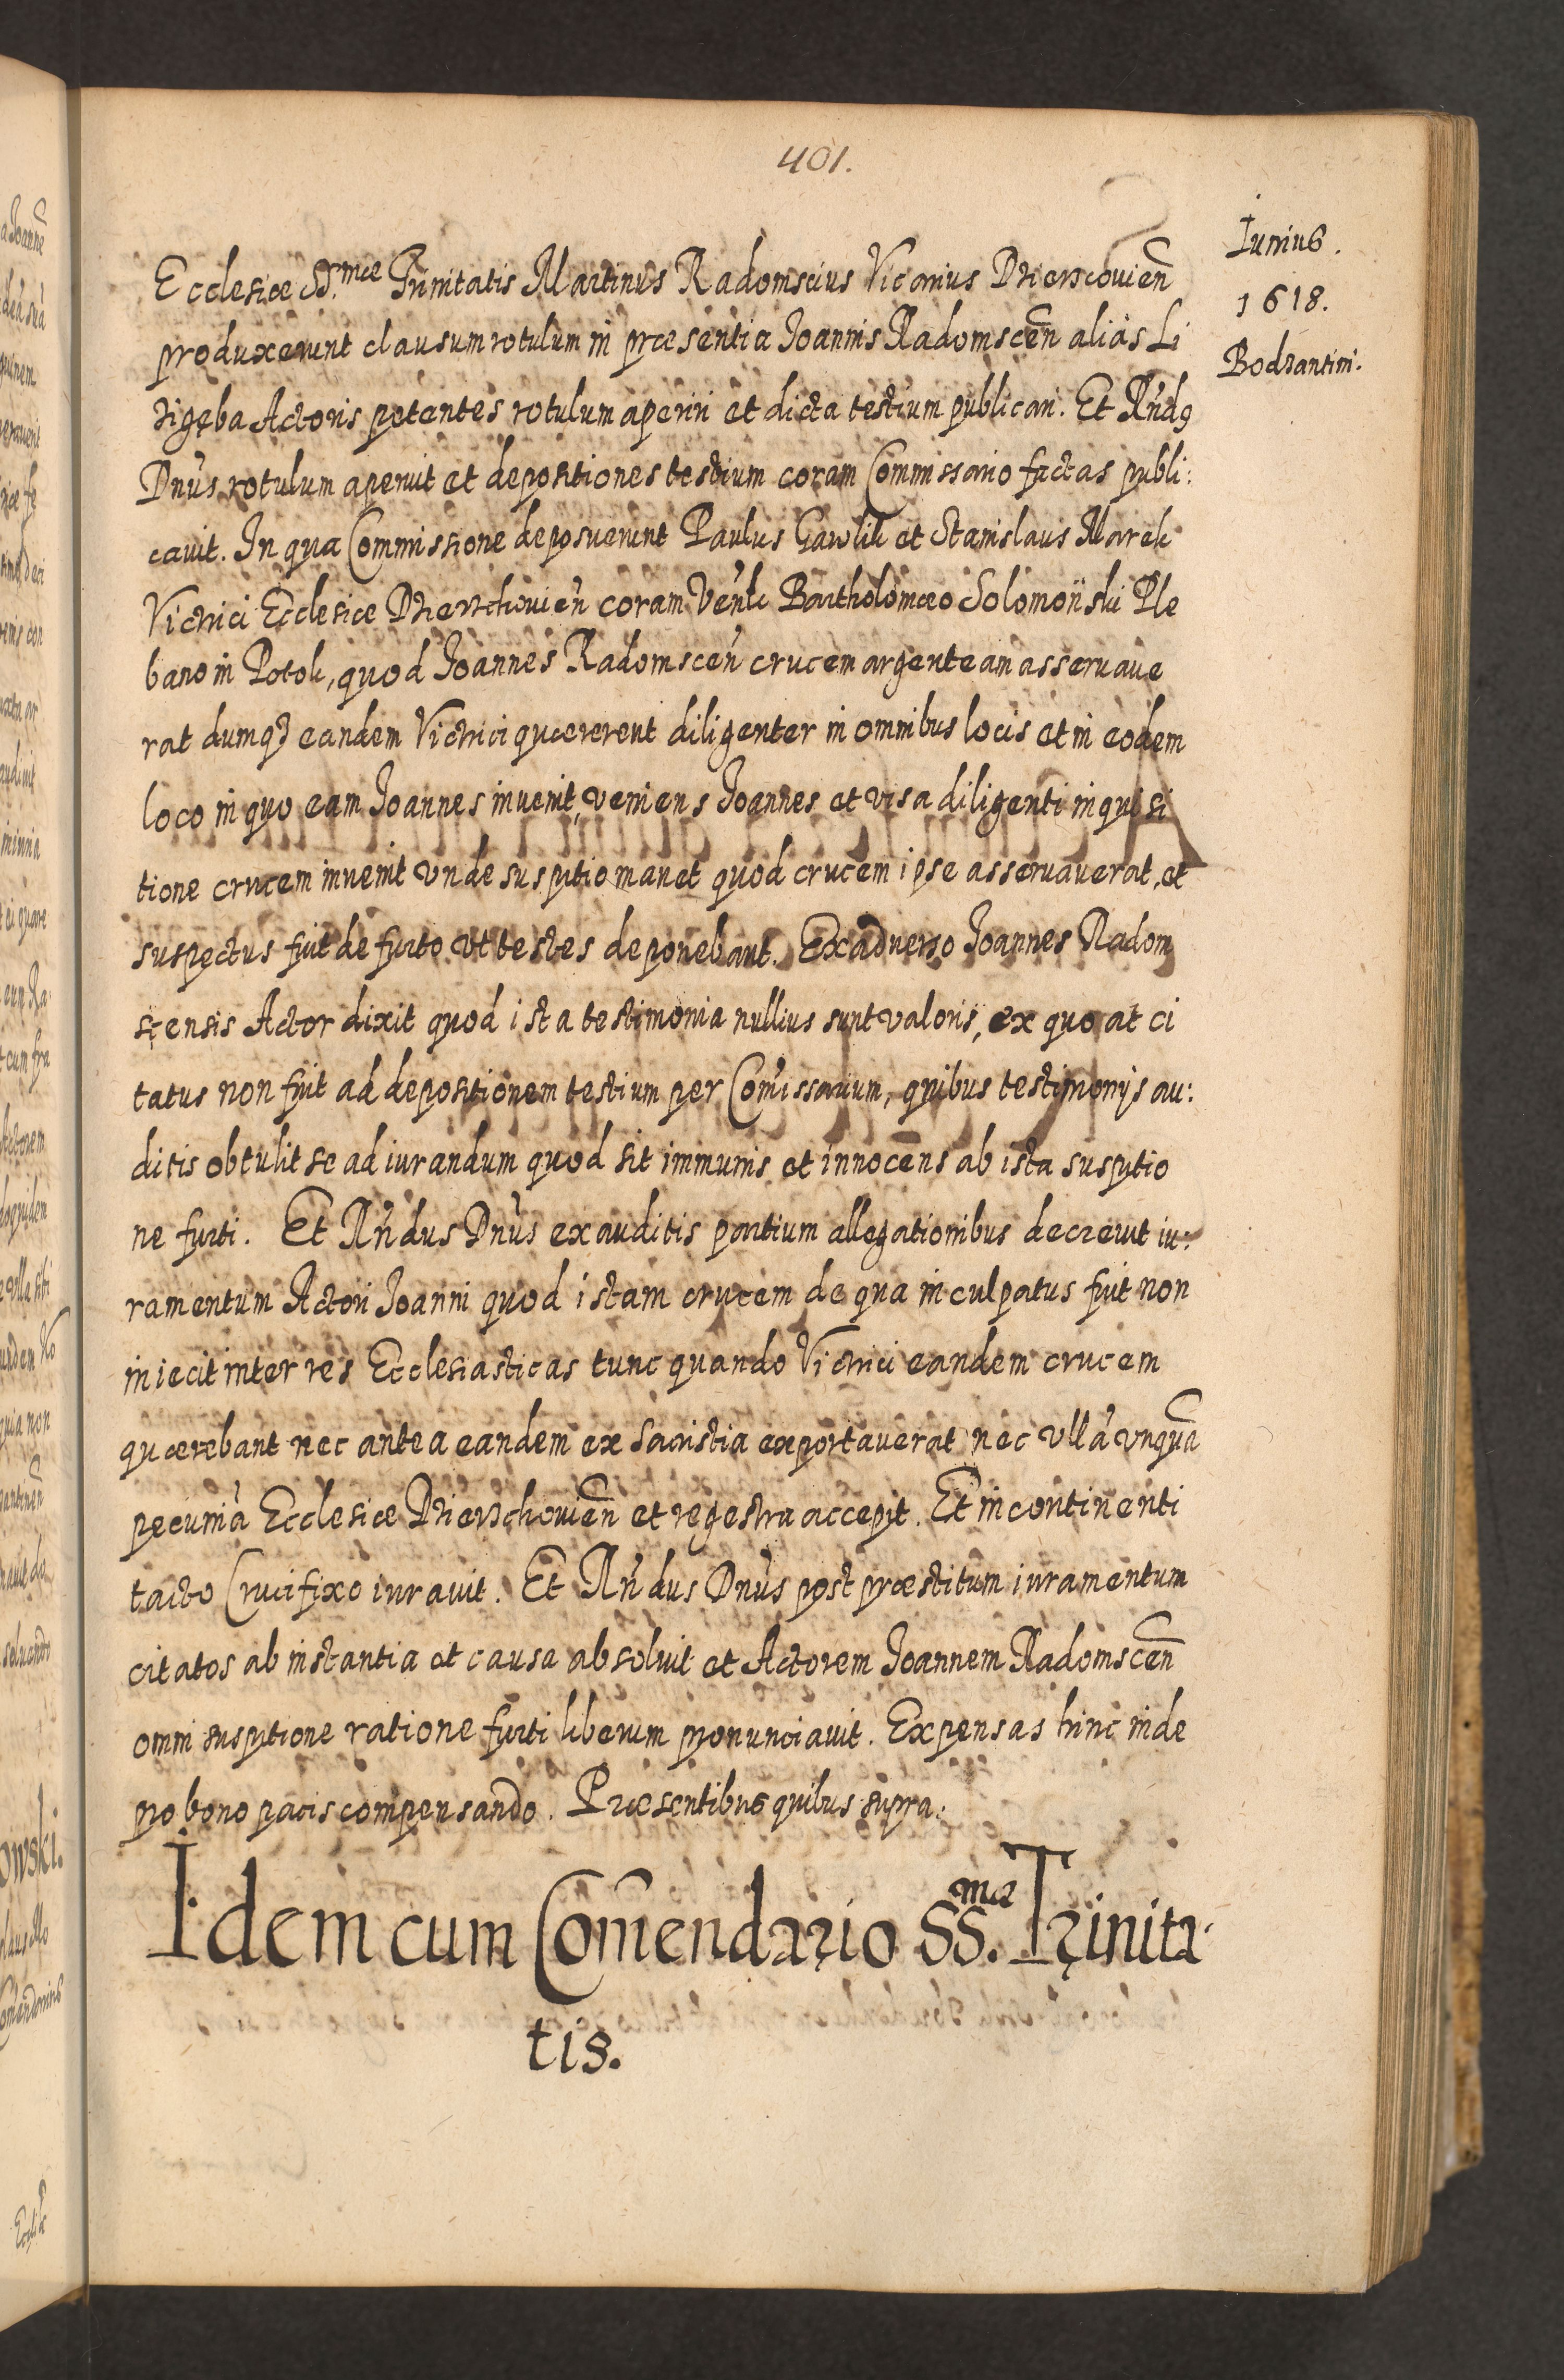 401.
Iunius.
1618.
Bodzantini.
Ecclesiæ SS.mæ Trinitatis Martinus Radomscius Vicarius Dzierzcouien̄
produxerunt clausum rotulum in præsentia Joannis Radomscen̄ aliàs Li
zigęba Actoris petentes rotulum aperiri et dicta testium publicari. Et Rn̄dꝯ
Dnūs rotulum aperuit et depositiones testium coram Commissario factas publi:
cauit. In qua Commissione deposuerunt Paulus Gawlik et Stanislaus Marek
Victrici Ecclesiæ Dzierzchouien̄ coram Venli Bartholomæo Solomoiiski Ple
bano in Potok, quod Joannes Radomscen̄ crucem argenteam asseruaue
rat dumqȝ eandem Victrici quærerent diligenter in omnibus locis et in eodem
loco in quo eam Joannes inuenit, veniens Joannes et visa diligenti inquisi
tione crucem inuenit vnde suspitio manet quod crucem ipse asseruauerat, et
suspectus fuit de furto vt testes deponebant. Ex aduerso Joannes Radom
scensis Actor dixit quod ista testimonia nullius sunt valoris, ex quo at ci
tatus non fuit ad depositionem testium per Com̄issarium, quibus testimonijs au:
ditis obtulit se ad iurandum quod sit immunis et innocens ab ista suspitio
ne furti. Et Rn̄dus Dnūs exauditis partium allegationibus decreuit iu:
ramentum Actori Joanni quod istam crucem de qua inculpatus fuit non
iniecit inter res Ecclesiasticas tunc quando Victrici eandem crucem
quærebant nec antea eandem ex Sacristia exportauerat nec vllā vnquā
pecuniā Ecclesiæ Dzierzchouien̄ et regestra accepit. Et incontinenti
tacto Crucifixo iurauit. Et Rn̄dus Dnūs post præstitum iuramentum
citatos ab instantia et causa absoluit et Actorem Joannem Radomscen̄
omni suspitione ratione furti liberum pronunciauit. Expensas hinc inde
pro bono pacis compensando. Præsentibus quibus supra.
Idem cum Com̄endario SS.mæ Trinita
tis.